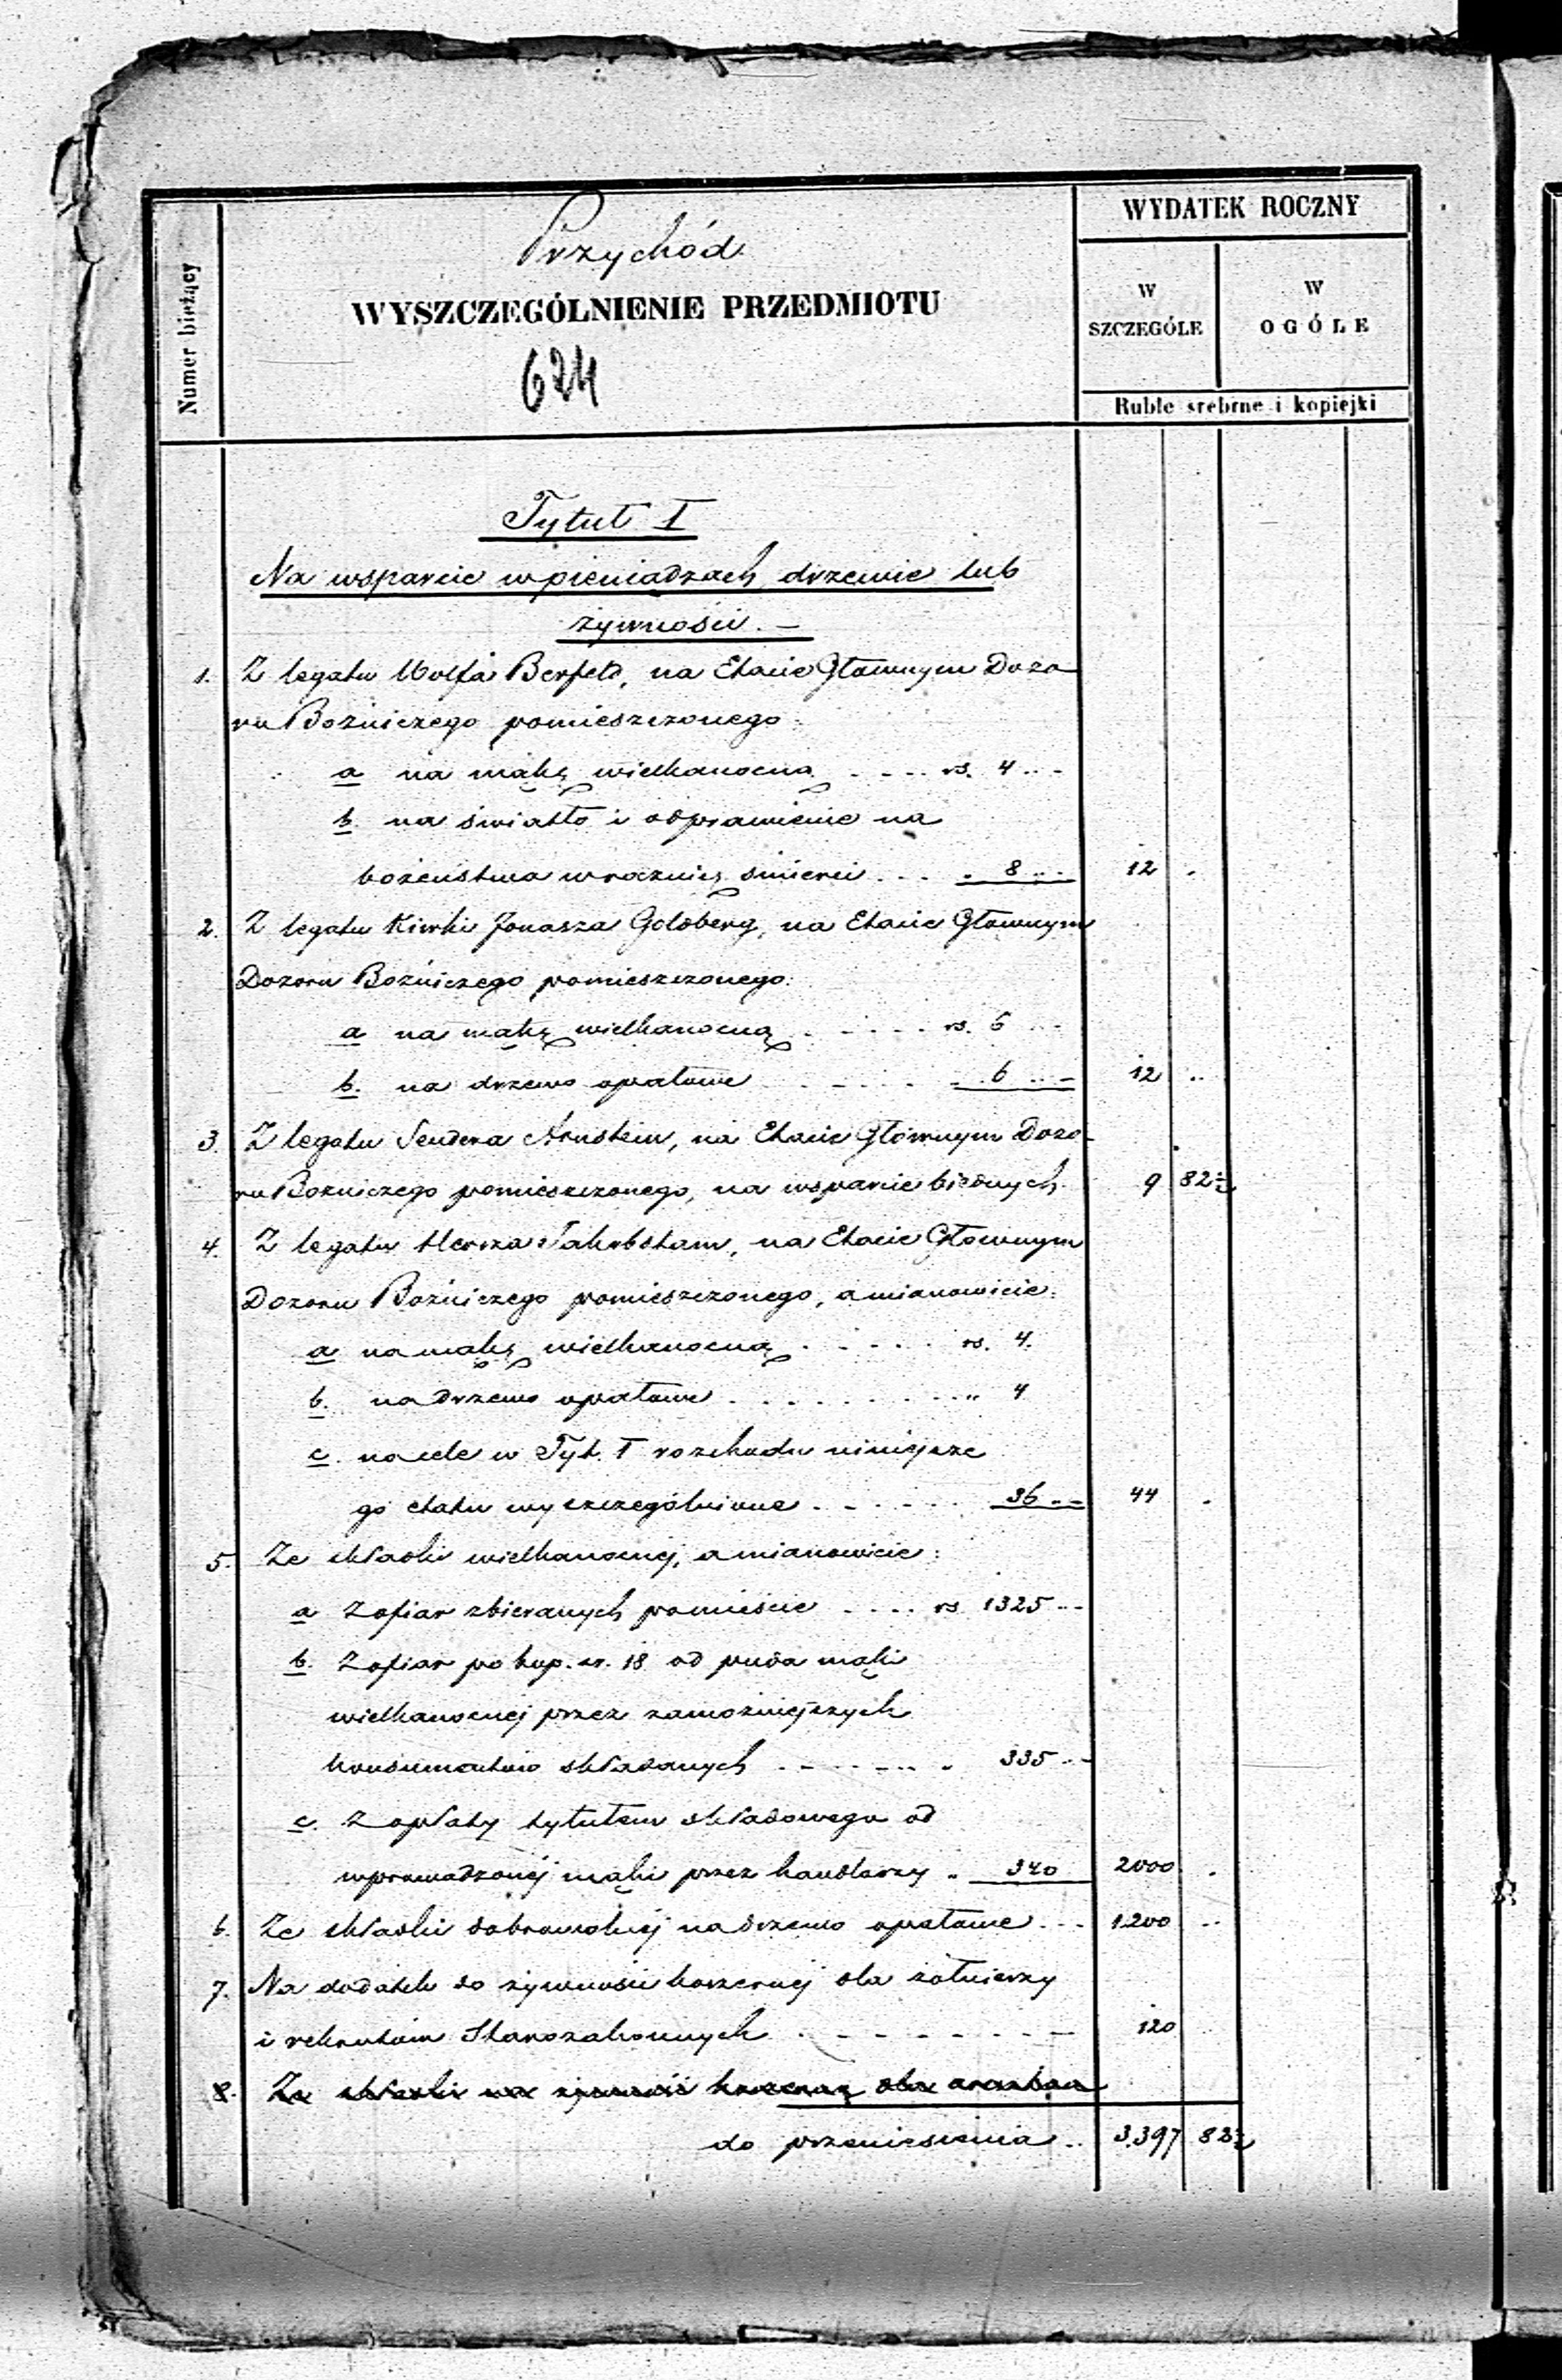 Przychód
WYDATEK ROCZNY
Numer bieżący
WYSZCZEGÓLNIENIE PRZEDMIOTU
W SZCZEGÓLE
W OGÓLE
624
Ruble srebrne i kopiejki
Tytuł I
Na wsparcie w pieniądzach, drzewie lub
żywności. —
1. Z legatu Wolfa Berfeld, na Etacie Głównym Dozo
ru Bożniczego pomieszczonego:
a na mąkę wielkanocną . - - - rs. 4 .. -
b. na światło i odprawienie na
bożeństwa w rocznicę śmierci . . . „ 8 .. - 12 .
2. Z legatu Kiwki Jonasza Goldberg, na Etacie Głównym
Dozoru Bożniczego pomieszczonego:
a na mąkę wielkanocną . - - - - rs. 6 .. -
b. na drzewo opałowe - - - - - 6 .. - 12 ..
3. Z legatu Sendera Arnstein, na Etacie Głównym Dozo-
ru Bożniczego pomieszczonego, na wsparcie biednych. 9 82½
4. Z legatu Hersza, na Etacie Głównym
Dozoru Bożniczego pomieszczonego, a mianowicie:
a na mąkę wielkanocną . - - - - rs. 4.
b. na drzewo opałowe . . . . . . . - - „ 4
c. na cele w Tyt. I rozchodu niniejsze
go etatu wyszczególnione . - - - - - 36 .. - 44 .
5. Ze składki wielkanocnej, a mianowicie:
a Z ofiar zbieranych po mieście - - - . rs 1325 .. -
b. Z ofiar po kop. sr. 18 od puda mąki
wielkanocnej przez zamożniejszych
konsumentów składanych . - - - - .. „ 335 .. -
c. Z opłaty tytułem składowego od
wprowadzonej mąki przez handlarzy „ 340 2000 .
6. Ze składki dobrowolnej na drzewo opałowe . - - 1200 ..
7. Na dodatek do żywności koszernej dla żołnierzy
i rekrutów Starozakonnych . - - - - - - - - 120
8. Ze składki na żywność koszerną dla
do przeniesienia .. 3.397 82½